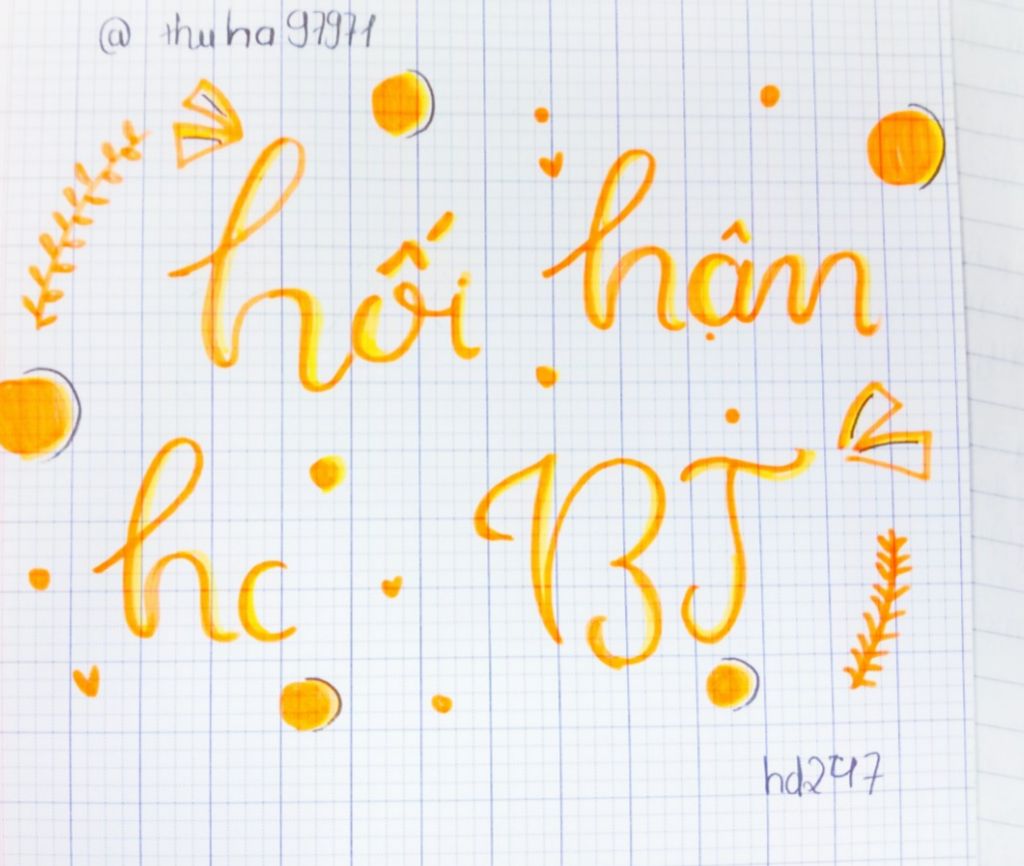 @ thuha97971
hối hận
hc BT
hd247